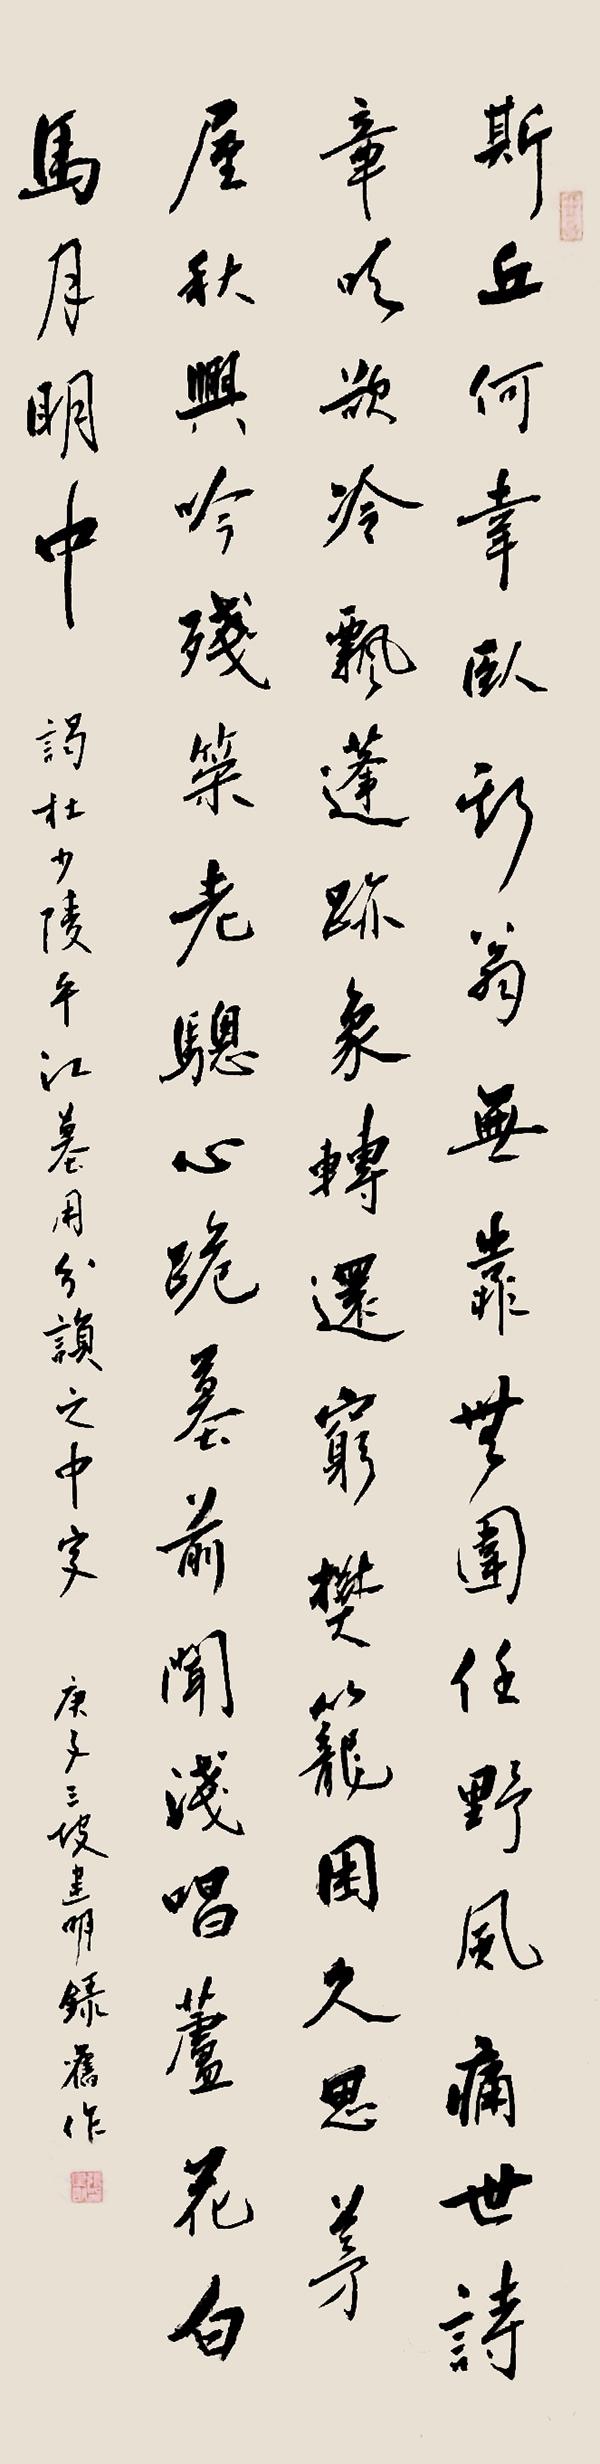 斯丘何幸臥斯翁無靠無圍任野風痛世詩
章吠欲冷飄蓬跡象轉還窮樊籠困久思茅
屋秋興吟殘築老驄心跪墓前聞淺唱蘆花白
馬月明中
謁杜少陵平江墓用分韻之中字
庚子三坡建明錄舊作